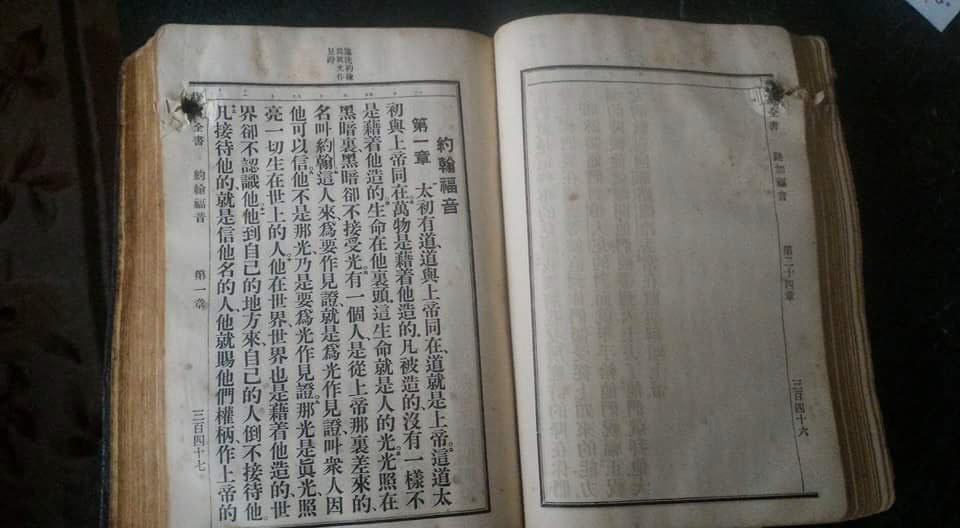 全書 路加福音 第二十四章 三百四十六
施洗約翰
爲眞光作
見證
約翰福音
第一章 太初有道、道與上帝同在、道就是上帝。這道太
初與上帝同在。萬物是藉着他造的、凡被造的、沒有一樣不
是藉着他造的。生命在他裏頭、這生命就是人的光。光照在
黑暗裏、黑暗卻不接受光。有一個人、是從上帝那裏差來的、
名叫約翰。這人來、爲要作見證、就是爲光作見證、叫衆人因
他可以信。他不是那光、乃是要爲光作見證。那光是眞光、照
亮一切生在世上的人。他在世界、世界也是藉着他造的、世
界卻不認識他。他到自己的地方來、自己的人倒不接待他。
凡接待他的、就是信他名的人、他就賜他們權柄、作上帝的
全書 約翰福音 第一章 三百四十七